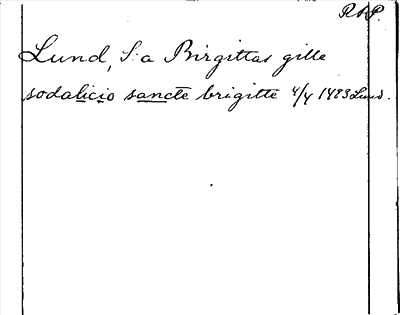 RAP.
Lund, S:a Birgittas gille
sodalicio sancte brigitte 4/4 1483 Lund.